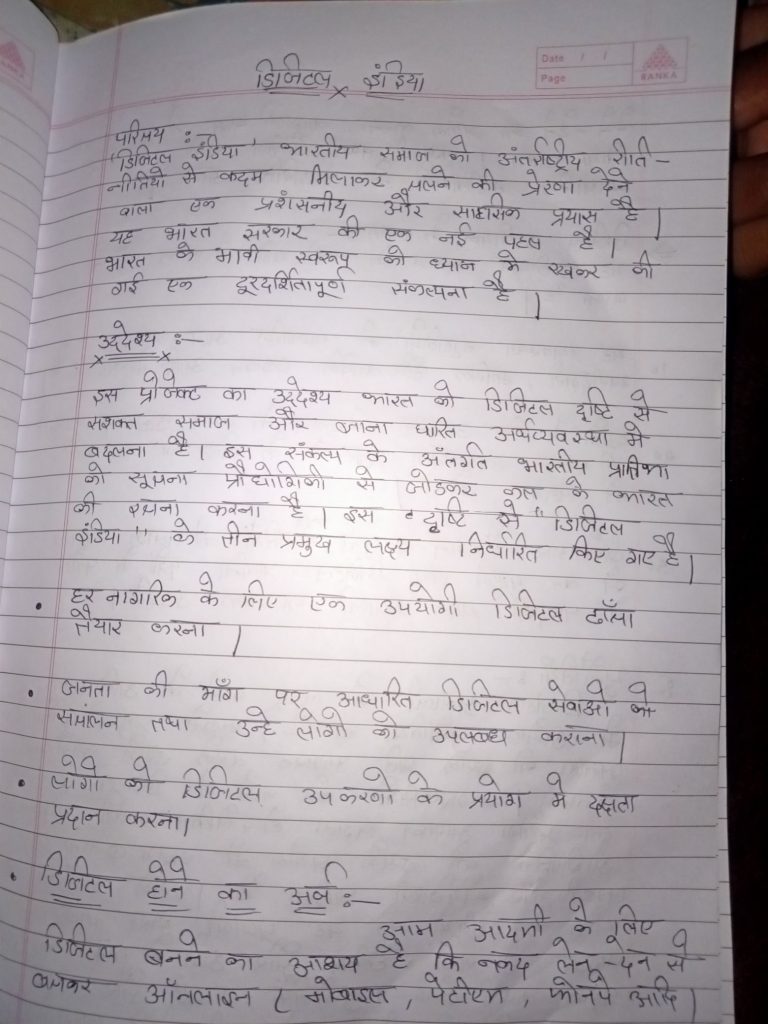 डिजिटल इंडिया
Date / /
Page
RANKA
परिचय :-
"डिजिटल इंडिया" भारतीय समाज को अंतर्राष्ट्रीय रीति-
नीतियो से कदम मिलाकर चलने की प्रेरणा देने
वाला एक प्रशंसनीय और साहसिक प्रयास है |
यह भारत सरकार की एक नई पहल है |
भारत के भावी स्वरूप को ध्यान मे रखकर की
गई एक दूरदर्शितापूर्ण संकल्पना है |
उद्देश्य :-
इस प्रोजेक्ट का उद्देश्य भारत को डिजिटल दृष्टि से
सशक्त समाज और ज्ञाना धारित अर्थव्यवस्था मे
बदलना है | इस संकल्प के अंतर्गत भारतीय प्रतिभा
को सूचना प्रौद्योगिकी से जोडकर कल के भारत
की रचना करना है | इस दृष्टि से "डिजिटल
इंडिया" के तीन प्रमुख लक्ष्य निर्धारित किए गए है |
• हर नागरिक के लिए एक उपयोगी डिजिटल ढाँचा
तैयार करना |
• जनता की माँग पर आधारित डिजिटल सेवाओ के
संचालन तथा उन्हे लोगो को उपलब्ध कराना |
• लोगो को डिजिटल उपकरणो के प्रयोग मे दक्षता
प्रदान करना |
• डिजिटल होने का अर्थ :-
आम आदमी के लिए
डिजिटल बनने का आशय है कि नकद लेन-देन से
बचकर ऑनलाइन ( मोबाइल , पेटीएम , फोनपे आदि )